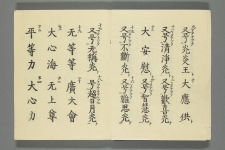 又号光炎王 大應供
又号清淨光 又号歡喜光
大安慰 又号智慧光
又号不斷光 又号難思光
又号无稱光 号超日月光
无等等 廣大會
大心海 无上尊
平等力 大心力